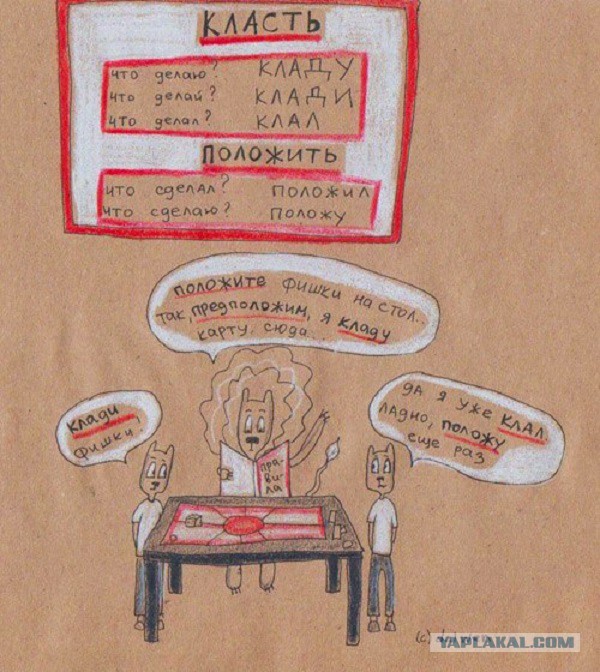 КЛАСТЬ
что делаю? КЛАДУ
что делай? КЛАДИ
что делал? КЛАЛ
ПОЛОЖИТЬ
что сделал? ПОЛОЖИЛ
что сделаю? ПОЛОЖУ
ПОЛОЖИТЕ фишки на стол..
так, предположим, я кладу
карту, сюда...
клади
фишки!
да я уже клал
ладно, положу
еще раз
пра-
ви-
ла
(c)
YAPLAKAL.COM